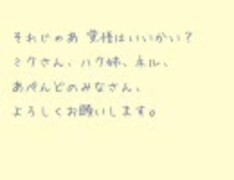 それじゃあ 覚悟はいいかい?
ミクさん、ハク姉、ネル、
あぺんどのみなさん、
よろしくお願いします。